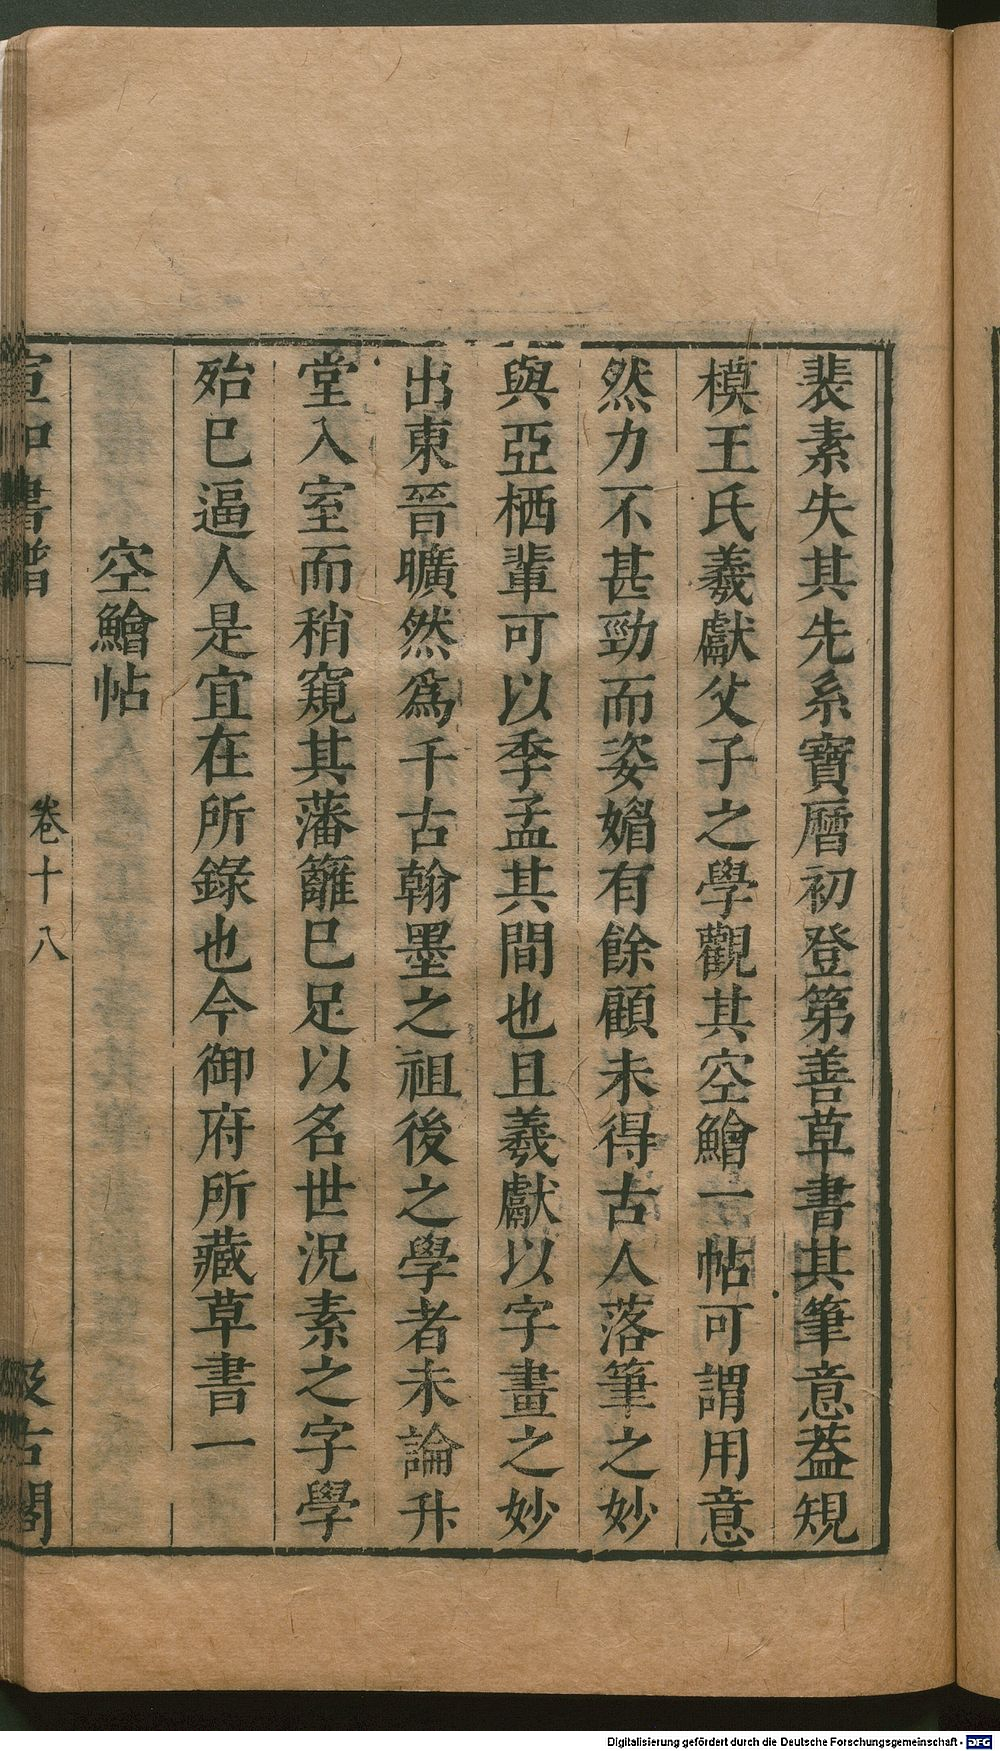 裴素失其先系寶曆初登第善草書其筆意蓋規
模王氏羲獻父子之學觀其空鱠一帖可謂用意
然力不甚勁而姿媚有餘顧未得古人落筆之妙
與亞栖輩可以季孟其間也且羲獻以字畫之妙
出東晉曠然爲千古翰墨之祖後之學者未論升
堂入室而稍窺其藩籬已足以名世況素之字學
殆已逼人是宜在所錄也今御府所藏草書一
空鱠帖
宣和書譜
卷十八
汲古閣
Digitalisierung gefördert durch die Deutsche Forschungsgemeinschaft - DFG